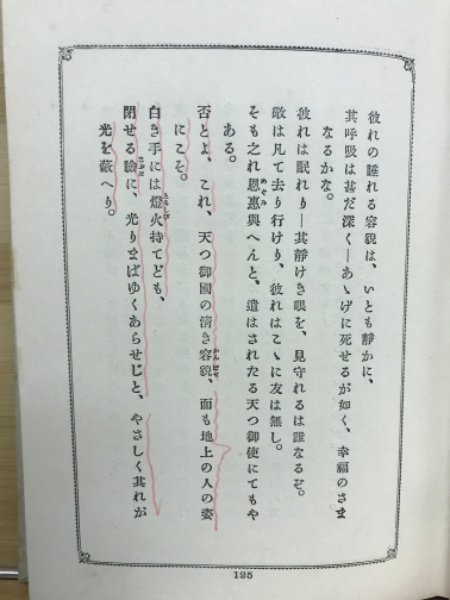 彼れの睡れる容貌は、いとも靜かに、
其呼吸は甚だ深く―あゝげに死せるが如く、幸福のさま
なるかな。
彼れは眠れり―其靜けき眠を、見守れるは誰なるぞ。
敵は凡て去り行けり、彼れはこゝに友は無し。
そも之れ恩惠與へんと、遣はされたる天つ御使にてもや
めぐみ
ある。
否とよ、これ、天つ御國の清き容貌、而も地上の人の姿
かんばせ
にこそ。
白き手には燈火持てども、
ともしび
閉せる瞼に、光りまばゆくあらせじと、やさしく其れが
まぶた
光を蔽へり。
125